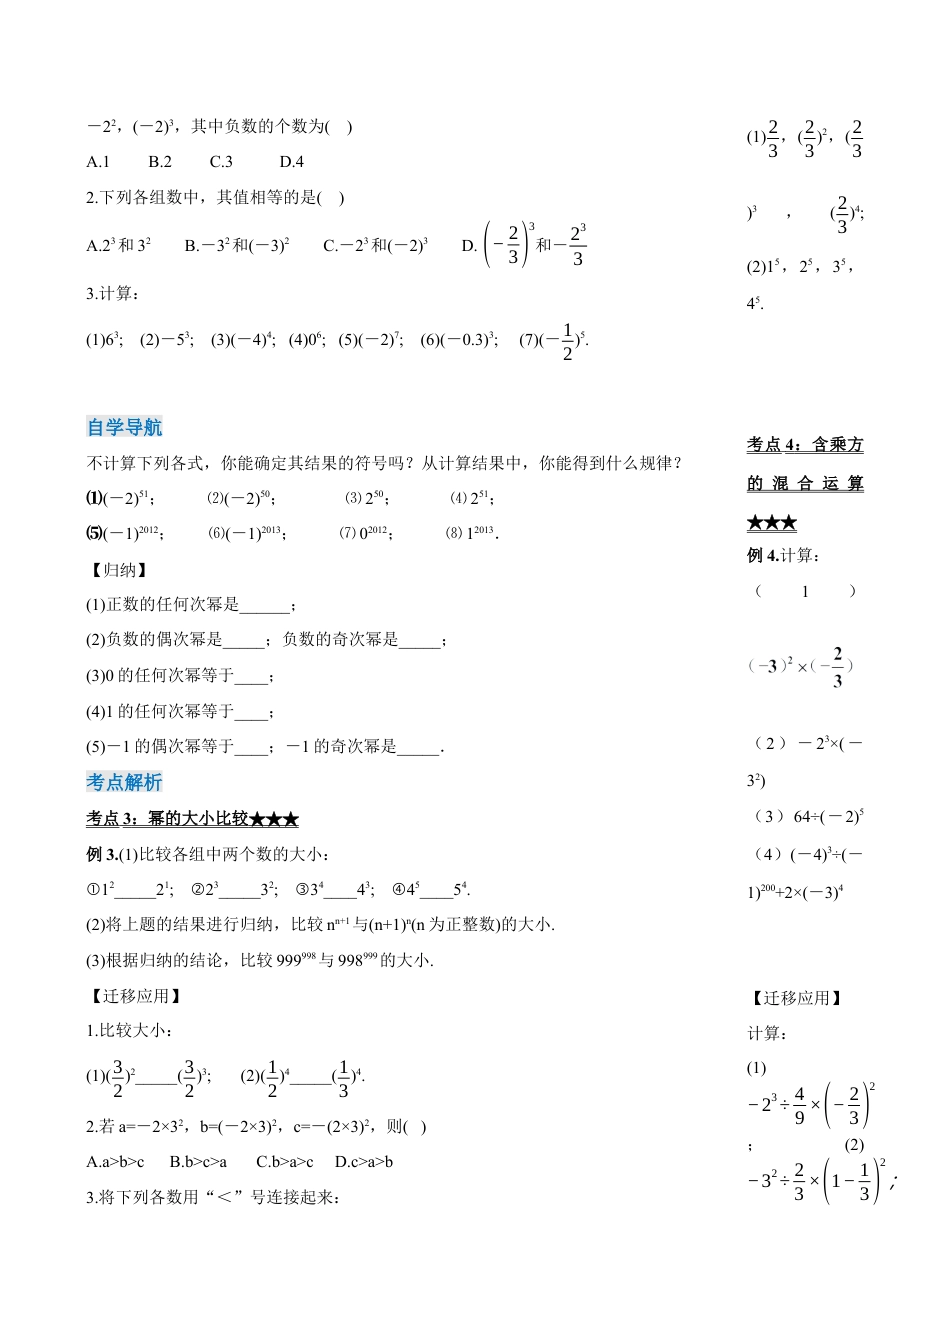 －2²，(－2)³，其中负数的个数为(    )
A.1    B.2    C.3    D.4
2.下列各组数中，其值相等的是(    )
A.2³和 3²    B.－3²和(－3)²    C.－2³和(－2)³    D. (−2/3)³和－2³/3
3.计算：
(1)6³;  (2)－5³;  (3)(－4)⁴;  (4)0⁶;  (5)(－2)⁷;  (6)(－0.3)³;  (7)(－1/2)⁵.
自学导航
不计算下列各式，你能确定其结果的符号吗？从计算结果中，你能得到什么规律？
⑴(－2)⁵¹；  ⑵(－2)⁵⁰；  ⑶ 2⁵⁰；  ⑷ 2⁵¹；
⑸(－1)²⁰¹²；  ⑹(－1)²⁰¹³；  ⑺ 0²⁰¹²；  ⑻ 1²⁰¹³．
【归纳】
(1)正数的任何次幂是______；
(2)负数的偶次幂是_____；负数的奇次幂是_____；
(3)0 的任何次幂等于____；
(4)1 的任何次幂等于____；
(5)－1 的偶次幂等于____；－1 的奇次幂是_____．
考点解析
考点 3：幂的大小比较★★★
例 3.(1)比较各组中两个数的大小：
①1²_____2¹;  ②2³_____3²;  ③3⁴____4³;  ④4⁵____5⁴.
(2)将上题的结果进行归纳，比较 nⁿ⁺¹与(n+1)ⁿ(n 为正整数)的大小.
(3)根据归纳的结论，比较 999⁹⁹⁸与 998⁹⁹⁹的大小.
【迁移应用】
1.比较大小：
(1)(3/2)²_____(3/2)³;  (2)(1/2)⁴_____(1/3)⁴.
2.若 a=－2×3²，b=(－2×3)²，c=－(2×3)²，则(   )
A.a>b>c    B.b>c>a    C.b>a>c    D.c>a>b
3.将下列各数用“＜”号连接起来：
(1)2/3，(2/3)²，(2/3
)³，(2/3)⁴;
(2)1⁵，2⁵，3⁵，
4⁵.
考点 4：含乘方
的混合运算
★★★
例 4.计算：
（1）
（−3）²×（−2/3）
（2）－2³×(－
3²)
（3）64÷(－2)⁵
（4）(－4)³÷(－
1)²⁰⁰+2×(－3)⁴
【迁移应用】
计算：
(1)
−2³÷4/9×(−2/3)²
；  (2)
−3²÷2/3×(1−1/3)²；